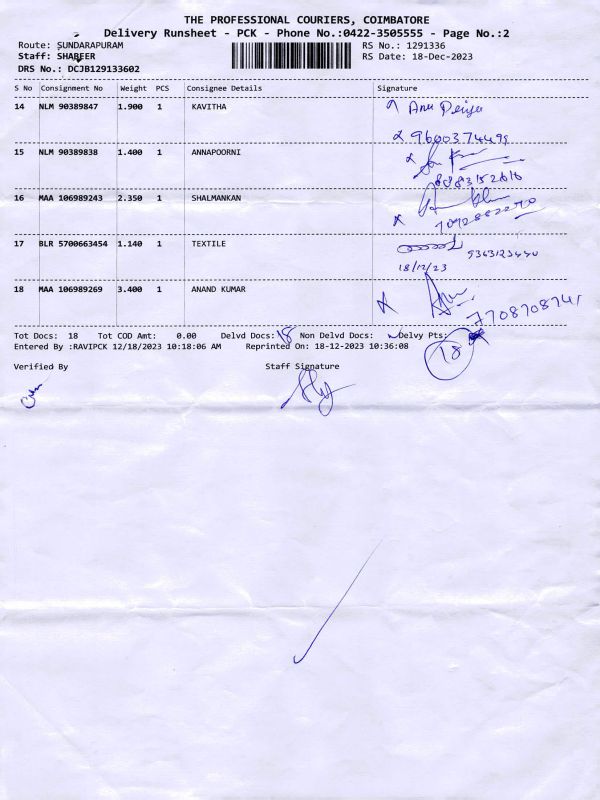 THE PROFESSIONAL COURIERS, COIMBATORE
Delivery Runsheet - PCK - Phone No.:0422-3505555 - Page No.:2
Route: SUNDARAPURAM RS No.: 1291336
Staff: SHABEER RS Date: 18-Dec-2023
DRS No.: DCJB129133602
S No Consignment No Weight PCS Consignee Details Signature
14 NLM 90389847 1.900 1 KAVITHA Anu Periya
9600374499
15 NLM 90389838 1.400 1 ANNAPOORNI
8883152616
16 MAA 106989243 2.350 1 SHALMANKAN
7092882270
17 BLR 5700663454 1.140 1 TEXTILE
9363123440
18/12/23
18 MAA 106989269 3.400 1 ANAND KUMAR
7708708741
Tot Docs: 18 Tot COD Amt: 0.00 Delvd Docs: 18 Non Delvd Docs: Delvy Pts: 18
Entered By :RAVIPCK 12/18/2023 10:18:06 AM Reprinted On: 18-12-2023 10:36:08
Verified By Staff Signature